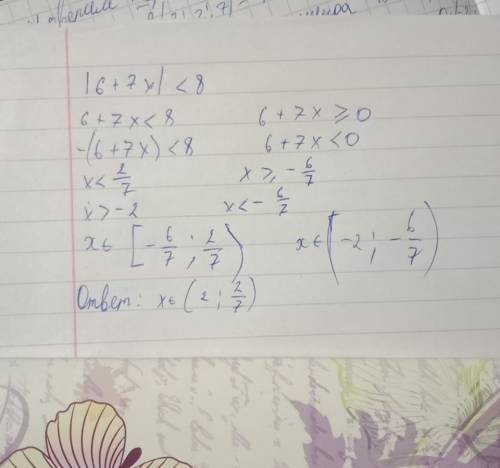 |6 + 7x| < 8
6 + 7x < 8     6 + 7x ⩾ 0
-(6 + 7x) < 8     6 + 7x < 0
x < 2/7     x ⩾ -6/7
x > -2     x < -6/7
x ∈ [-6/7 ; 2/7)     x ∈ (-2 ; -6/7)
Ответ: x ∈ (2 ; 2/7)